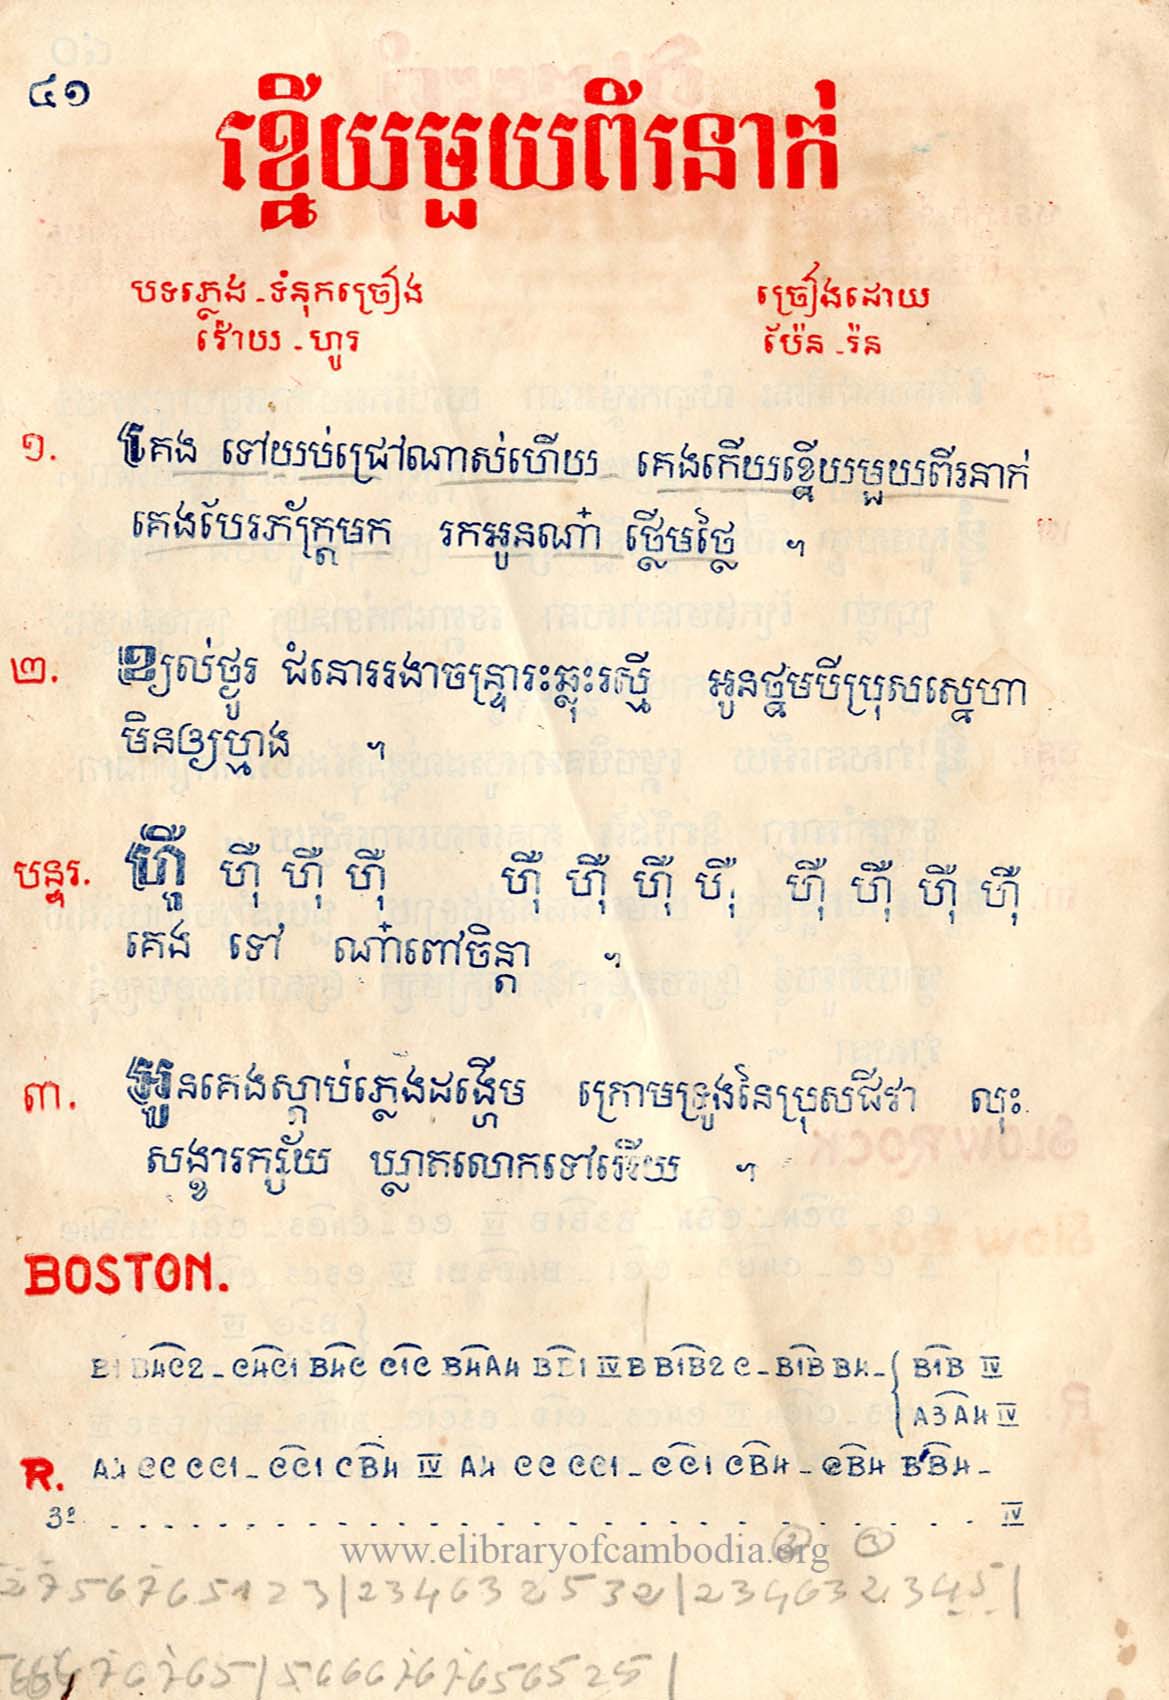 ៤១
ខ្នើយមួយពីរនាក់
បទភ្លេង - ទំនុកច្រៀង
វ៉ោយ - ហូរ
ច្រៀងដោយ
ប៉ែន - រ៉ន
១. គេង ទៅយប់ជ្រៅណាស់ហើយ គេងកើយខ្នើយមួយពីរនាក់
គេងបែរភ័ក្ត្រមក រកអូនណ៎ា ថ្លើមថ្លៃ ។
២. ខ្យល់ថ្ងូរ ជំនោររងាចន្ទ្រារះឆ្លុះរស្មី អូនថ្នមបីប្រុសស្នេហា
មិនឲ្យហ្មង ។
បន្ទរ. ហ៊ឺ ហ៊ឺ ហ៊ឺ ហ៊ឺ ហ៊ឺ ហ៊ឺ ហ៊ឺ ហ៊ឺ ហ៊ឺ ហ៊ឺ ហ៊ឺ ហ៊ឺ
គេង ទៅ ណ៎ាពៅចិន្តា ។
៣. អូនគេងស្ដាប់ភ្លេងដង្ហើម ក្រោមទ្រូងនៃប្រុសជីវា លុះ
សង្ខារក្ស័យ ឃ្លាតលោកទៅហើយ ។
BOSTON.
B1 B4C2 - C4C1 B4C C1C B4A4 BB1 IV B B1B2 C - B1B B4 - { B1B IV
A3A4 IV
R. A4 CC CC1 - CC1 CB4 IV A4 CC CC1 - CC1 CB4 - CB4 BB4 -
3º . . . . . . . . . . . . . . . . . . . . . . . . . . . . . . IV
www.elibraryofcambodia.org
② ③
2756765123|234632532|234632345|
66676765|5666767656525|